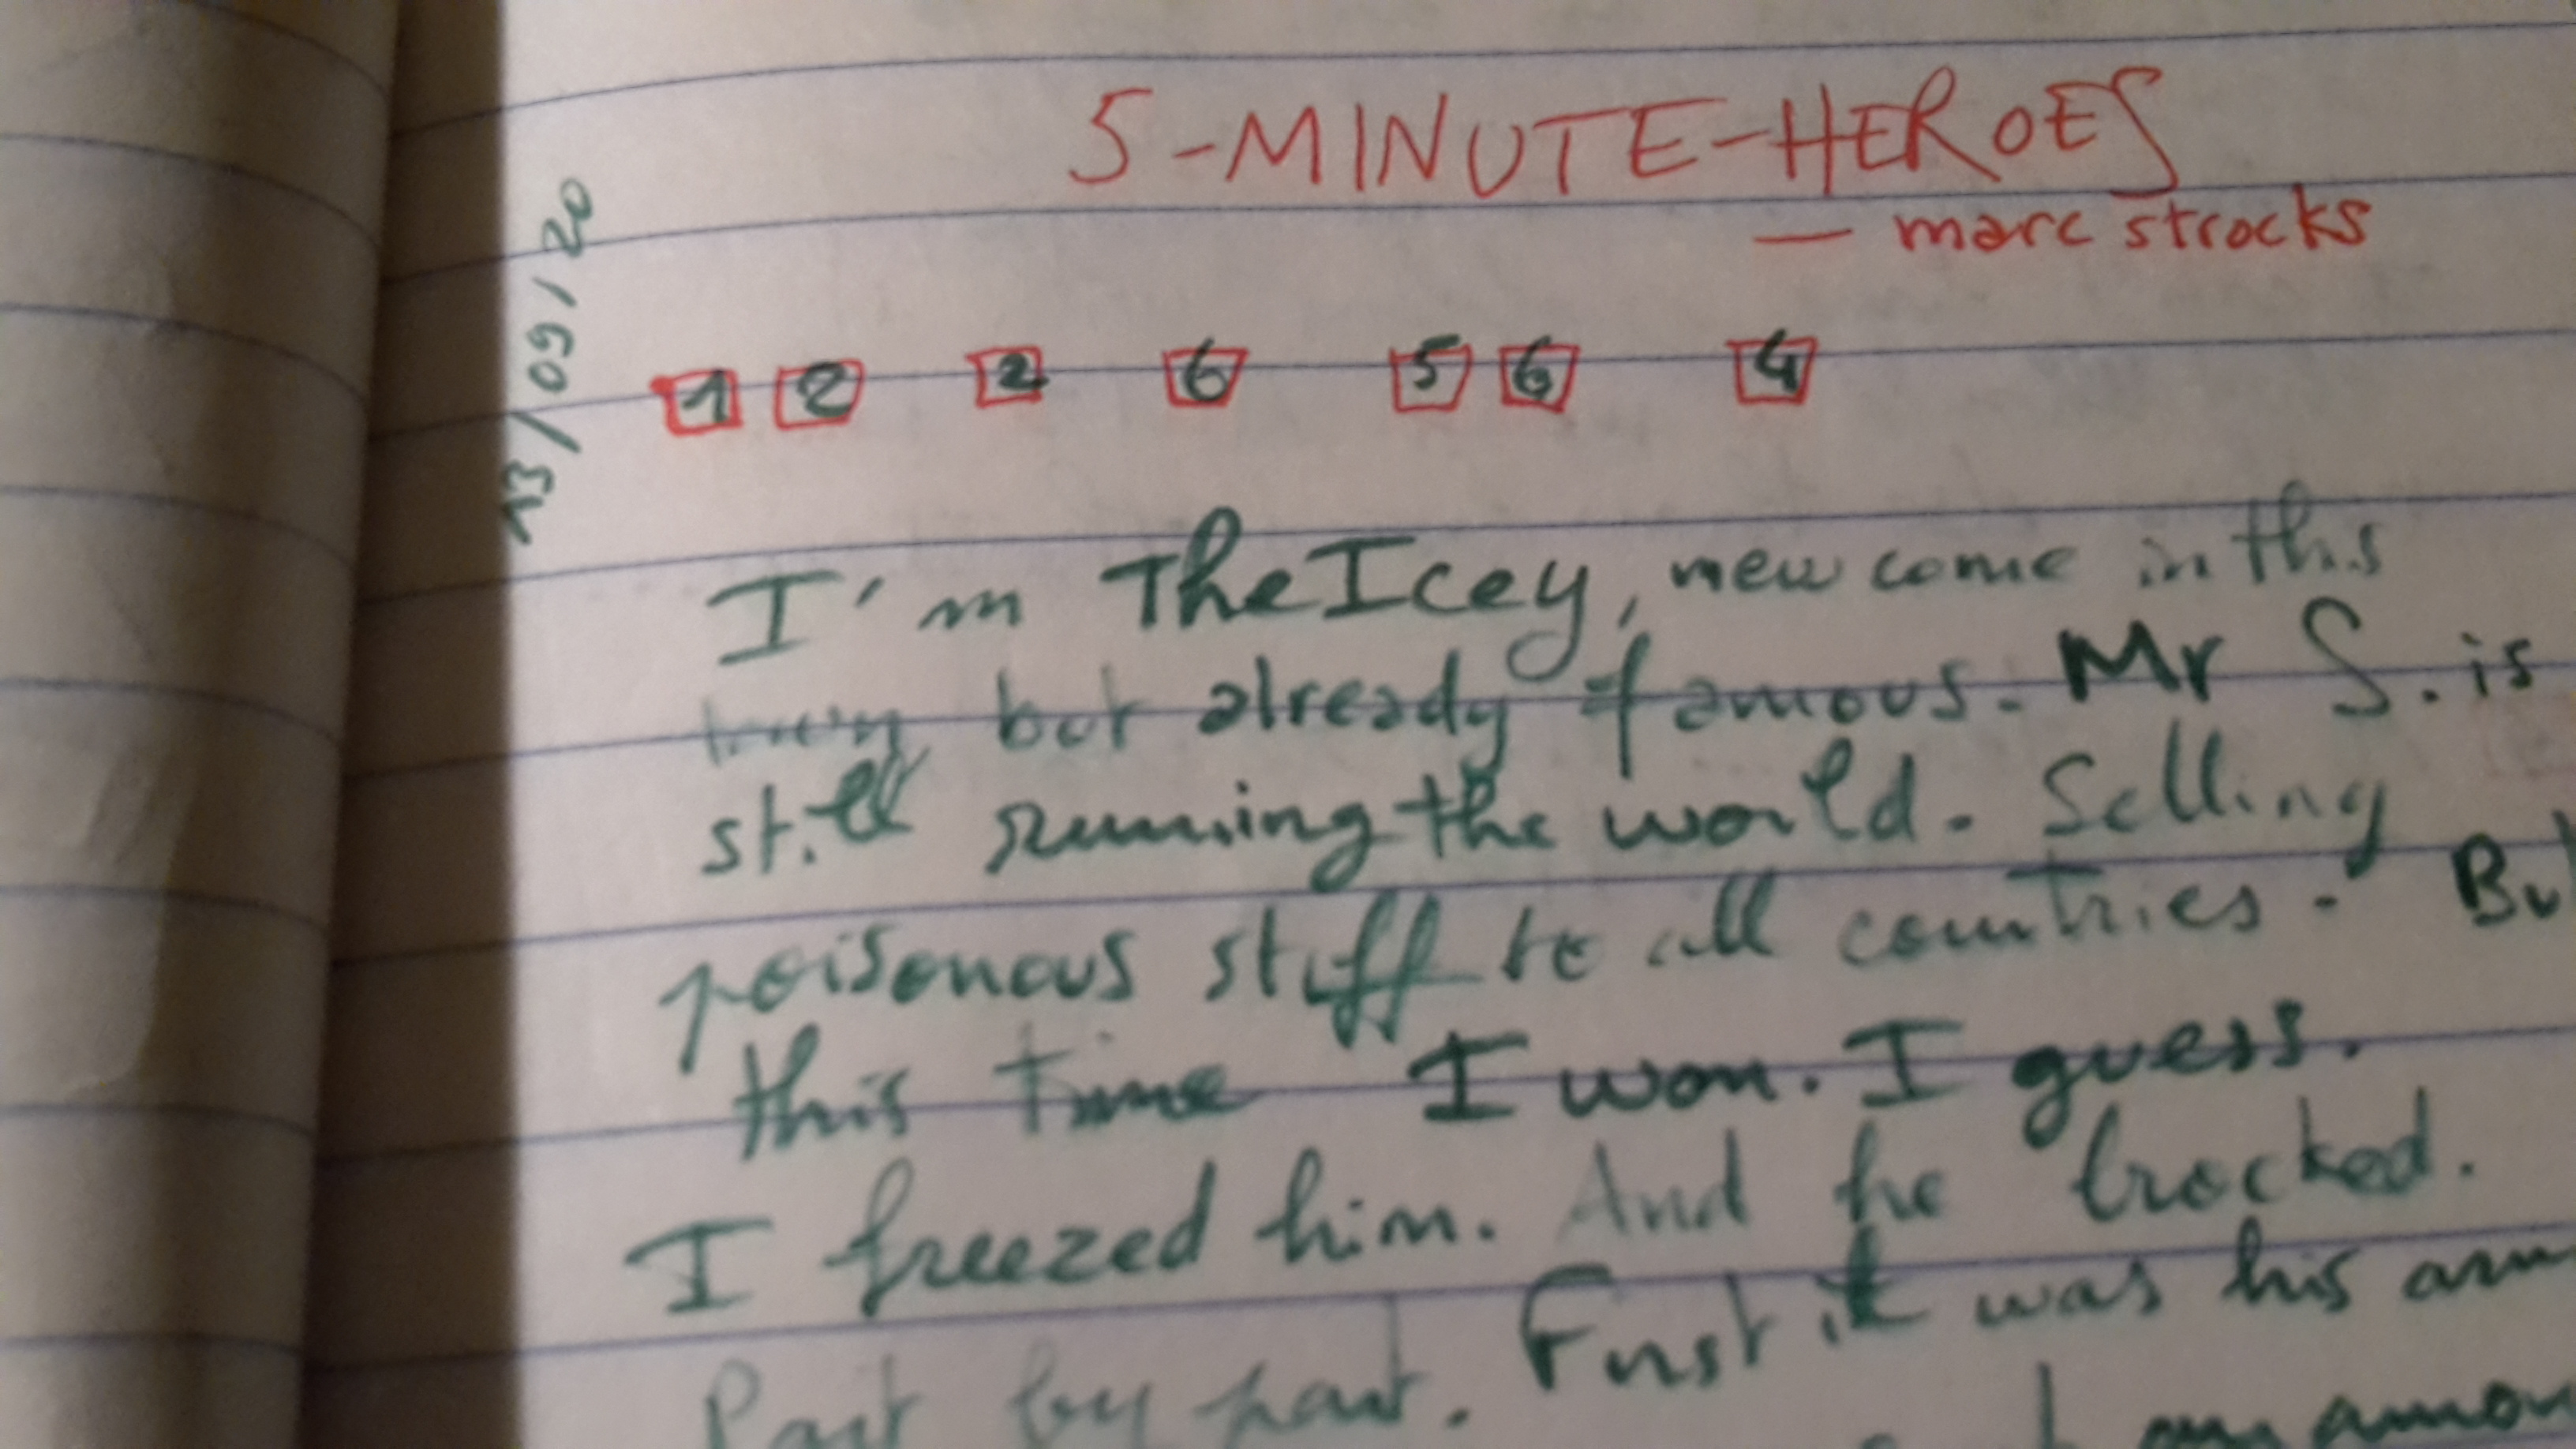 5-MINUTE-HEROES
— marc strocks
13/09/20
1 2 2 6 5 6 4
I'm The Icey, new come in this
but already famous. Mr S. is
still running the world. Selling
poisonous stuff to all countries. But
this time I won. I guess.
I freezed him. And he brocked.
Part by part. First it was his arm